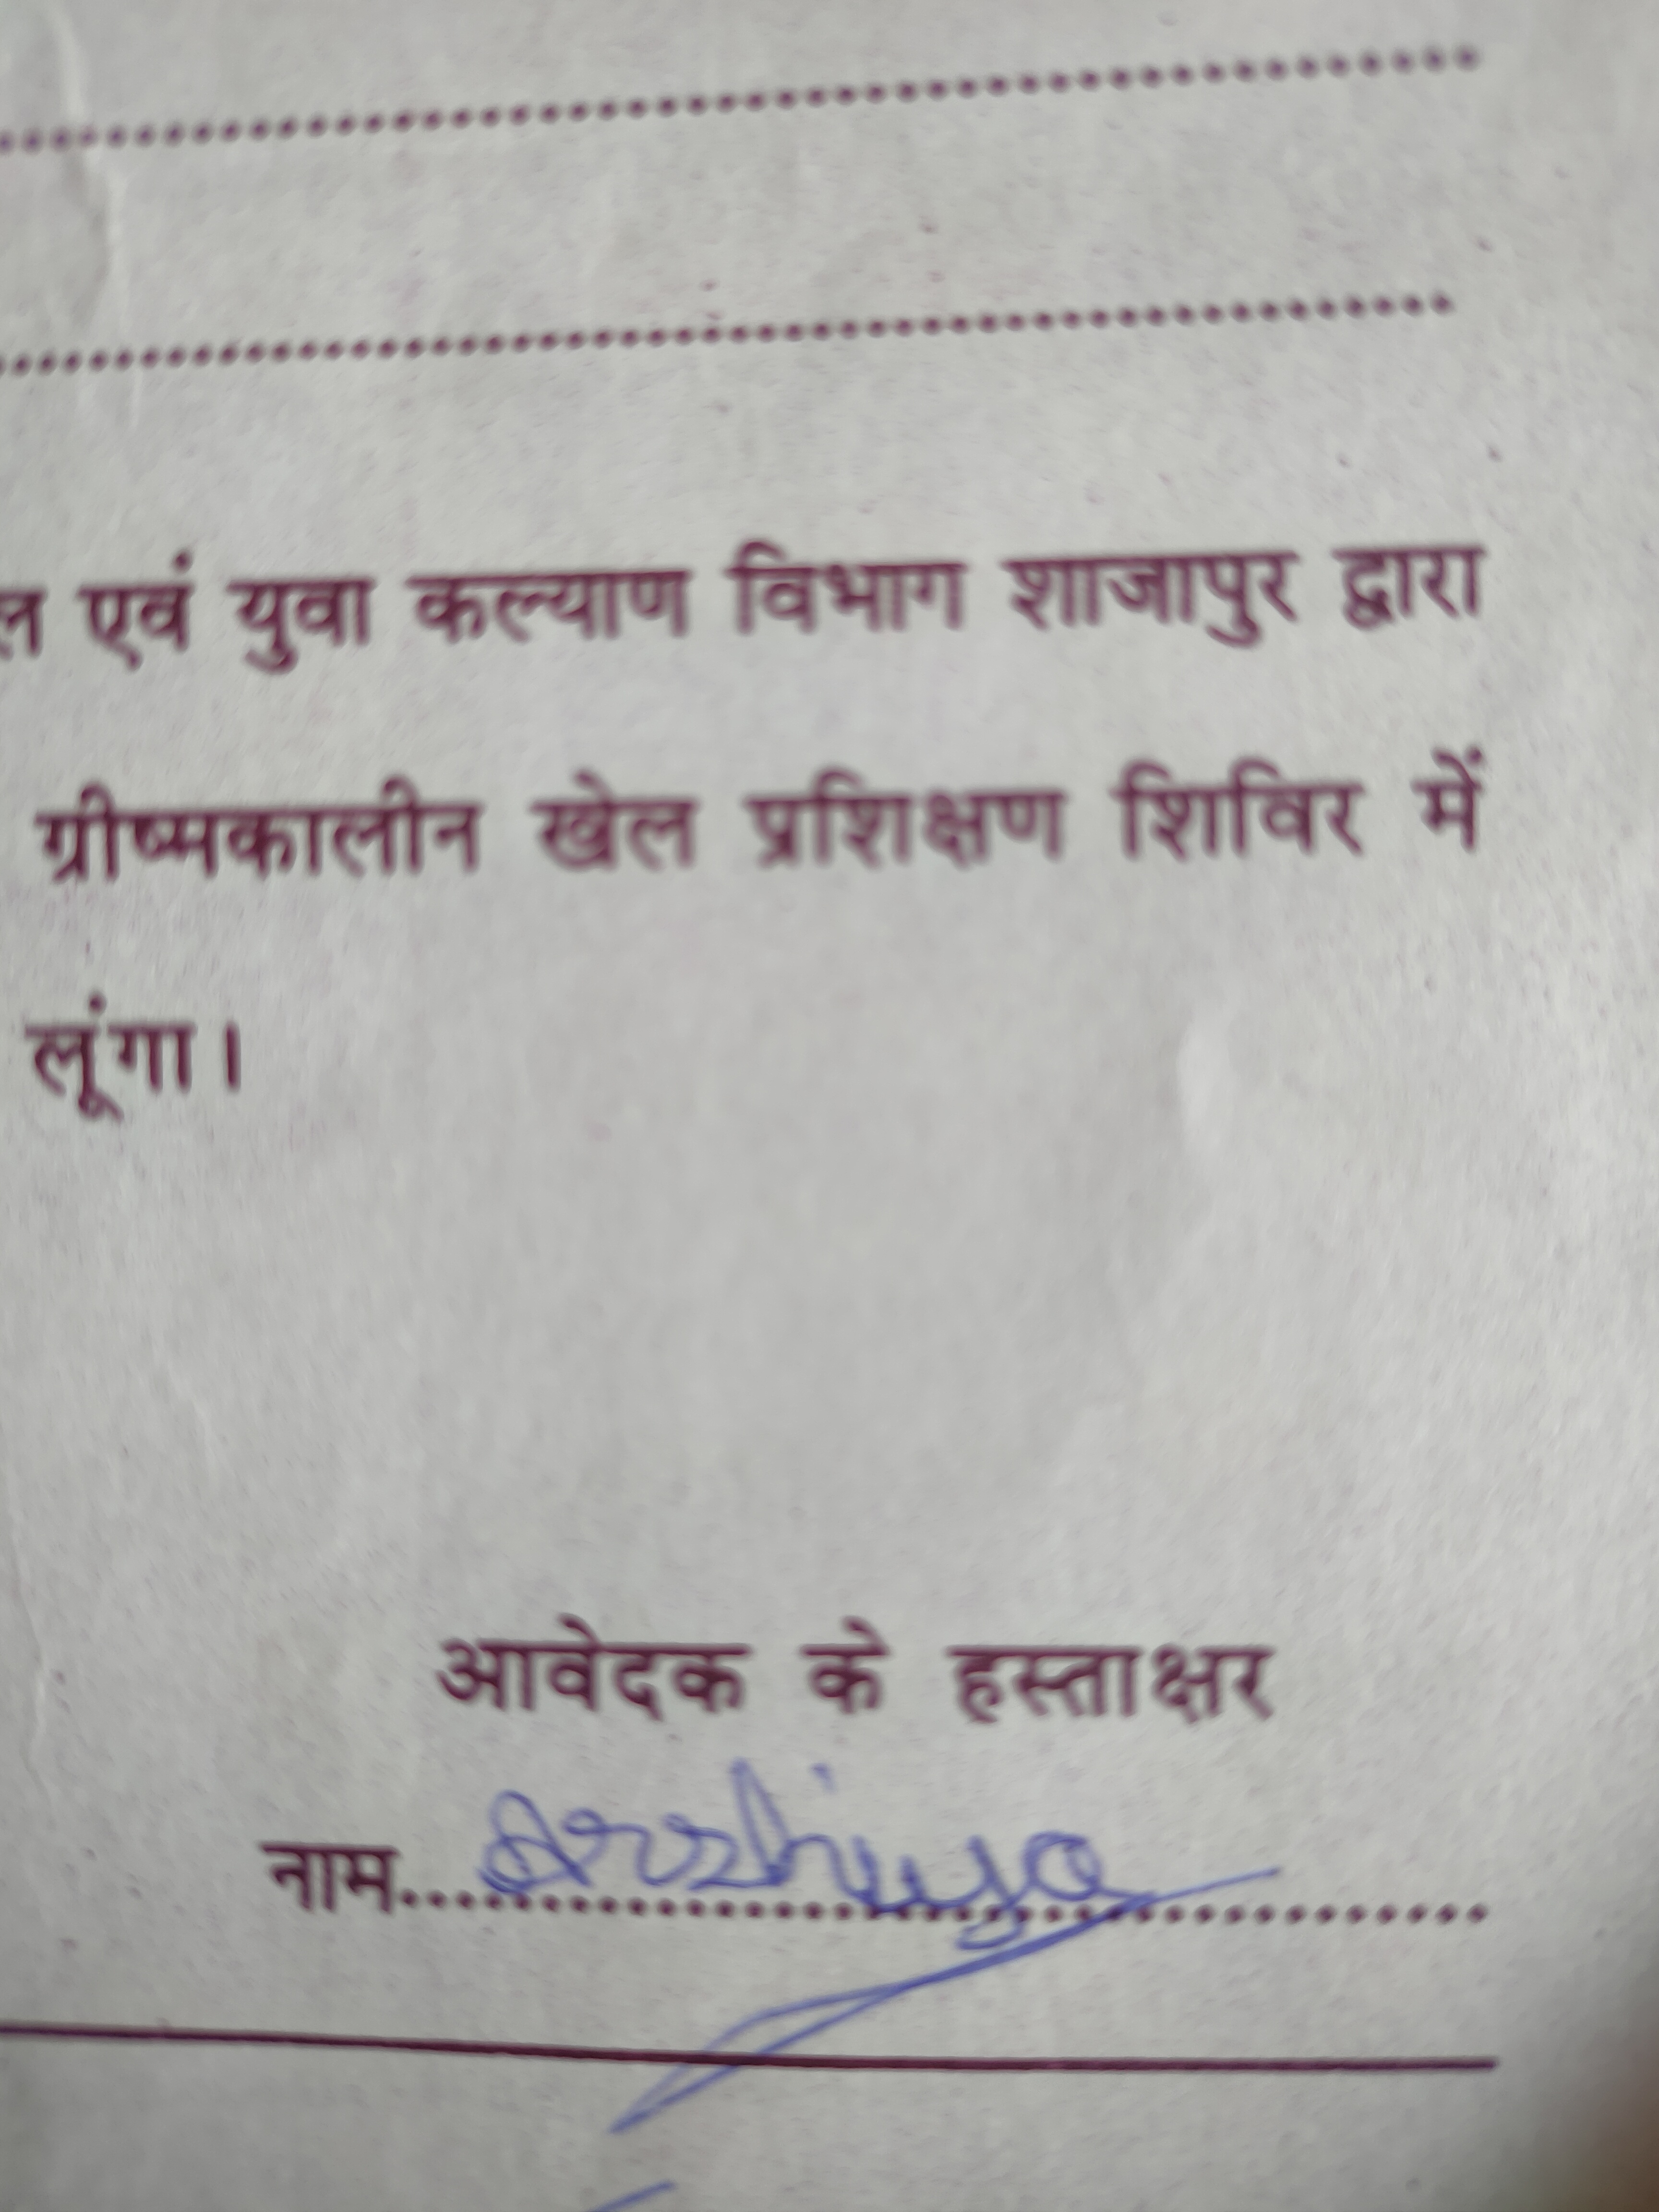 ल एवं युवा कल्याण विभाग शाजापुर द्वारा
ग्रीष्मकालीन खेल प्रशिक्षण शिविर में
लूंगा।
आवेदक के हस्ताक्षर
नाम.....Arshiya.....